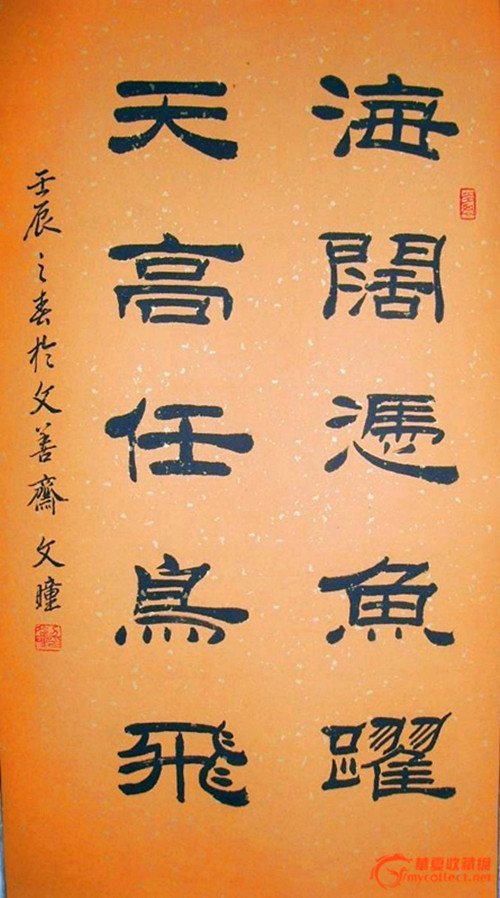 海闊憑魚躍
天高任鳥飛
壬辰之春於文善齋 文瞳
華夏收藏網
mycollect.net